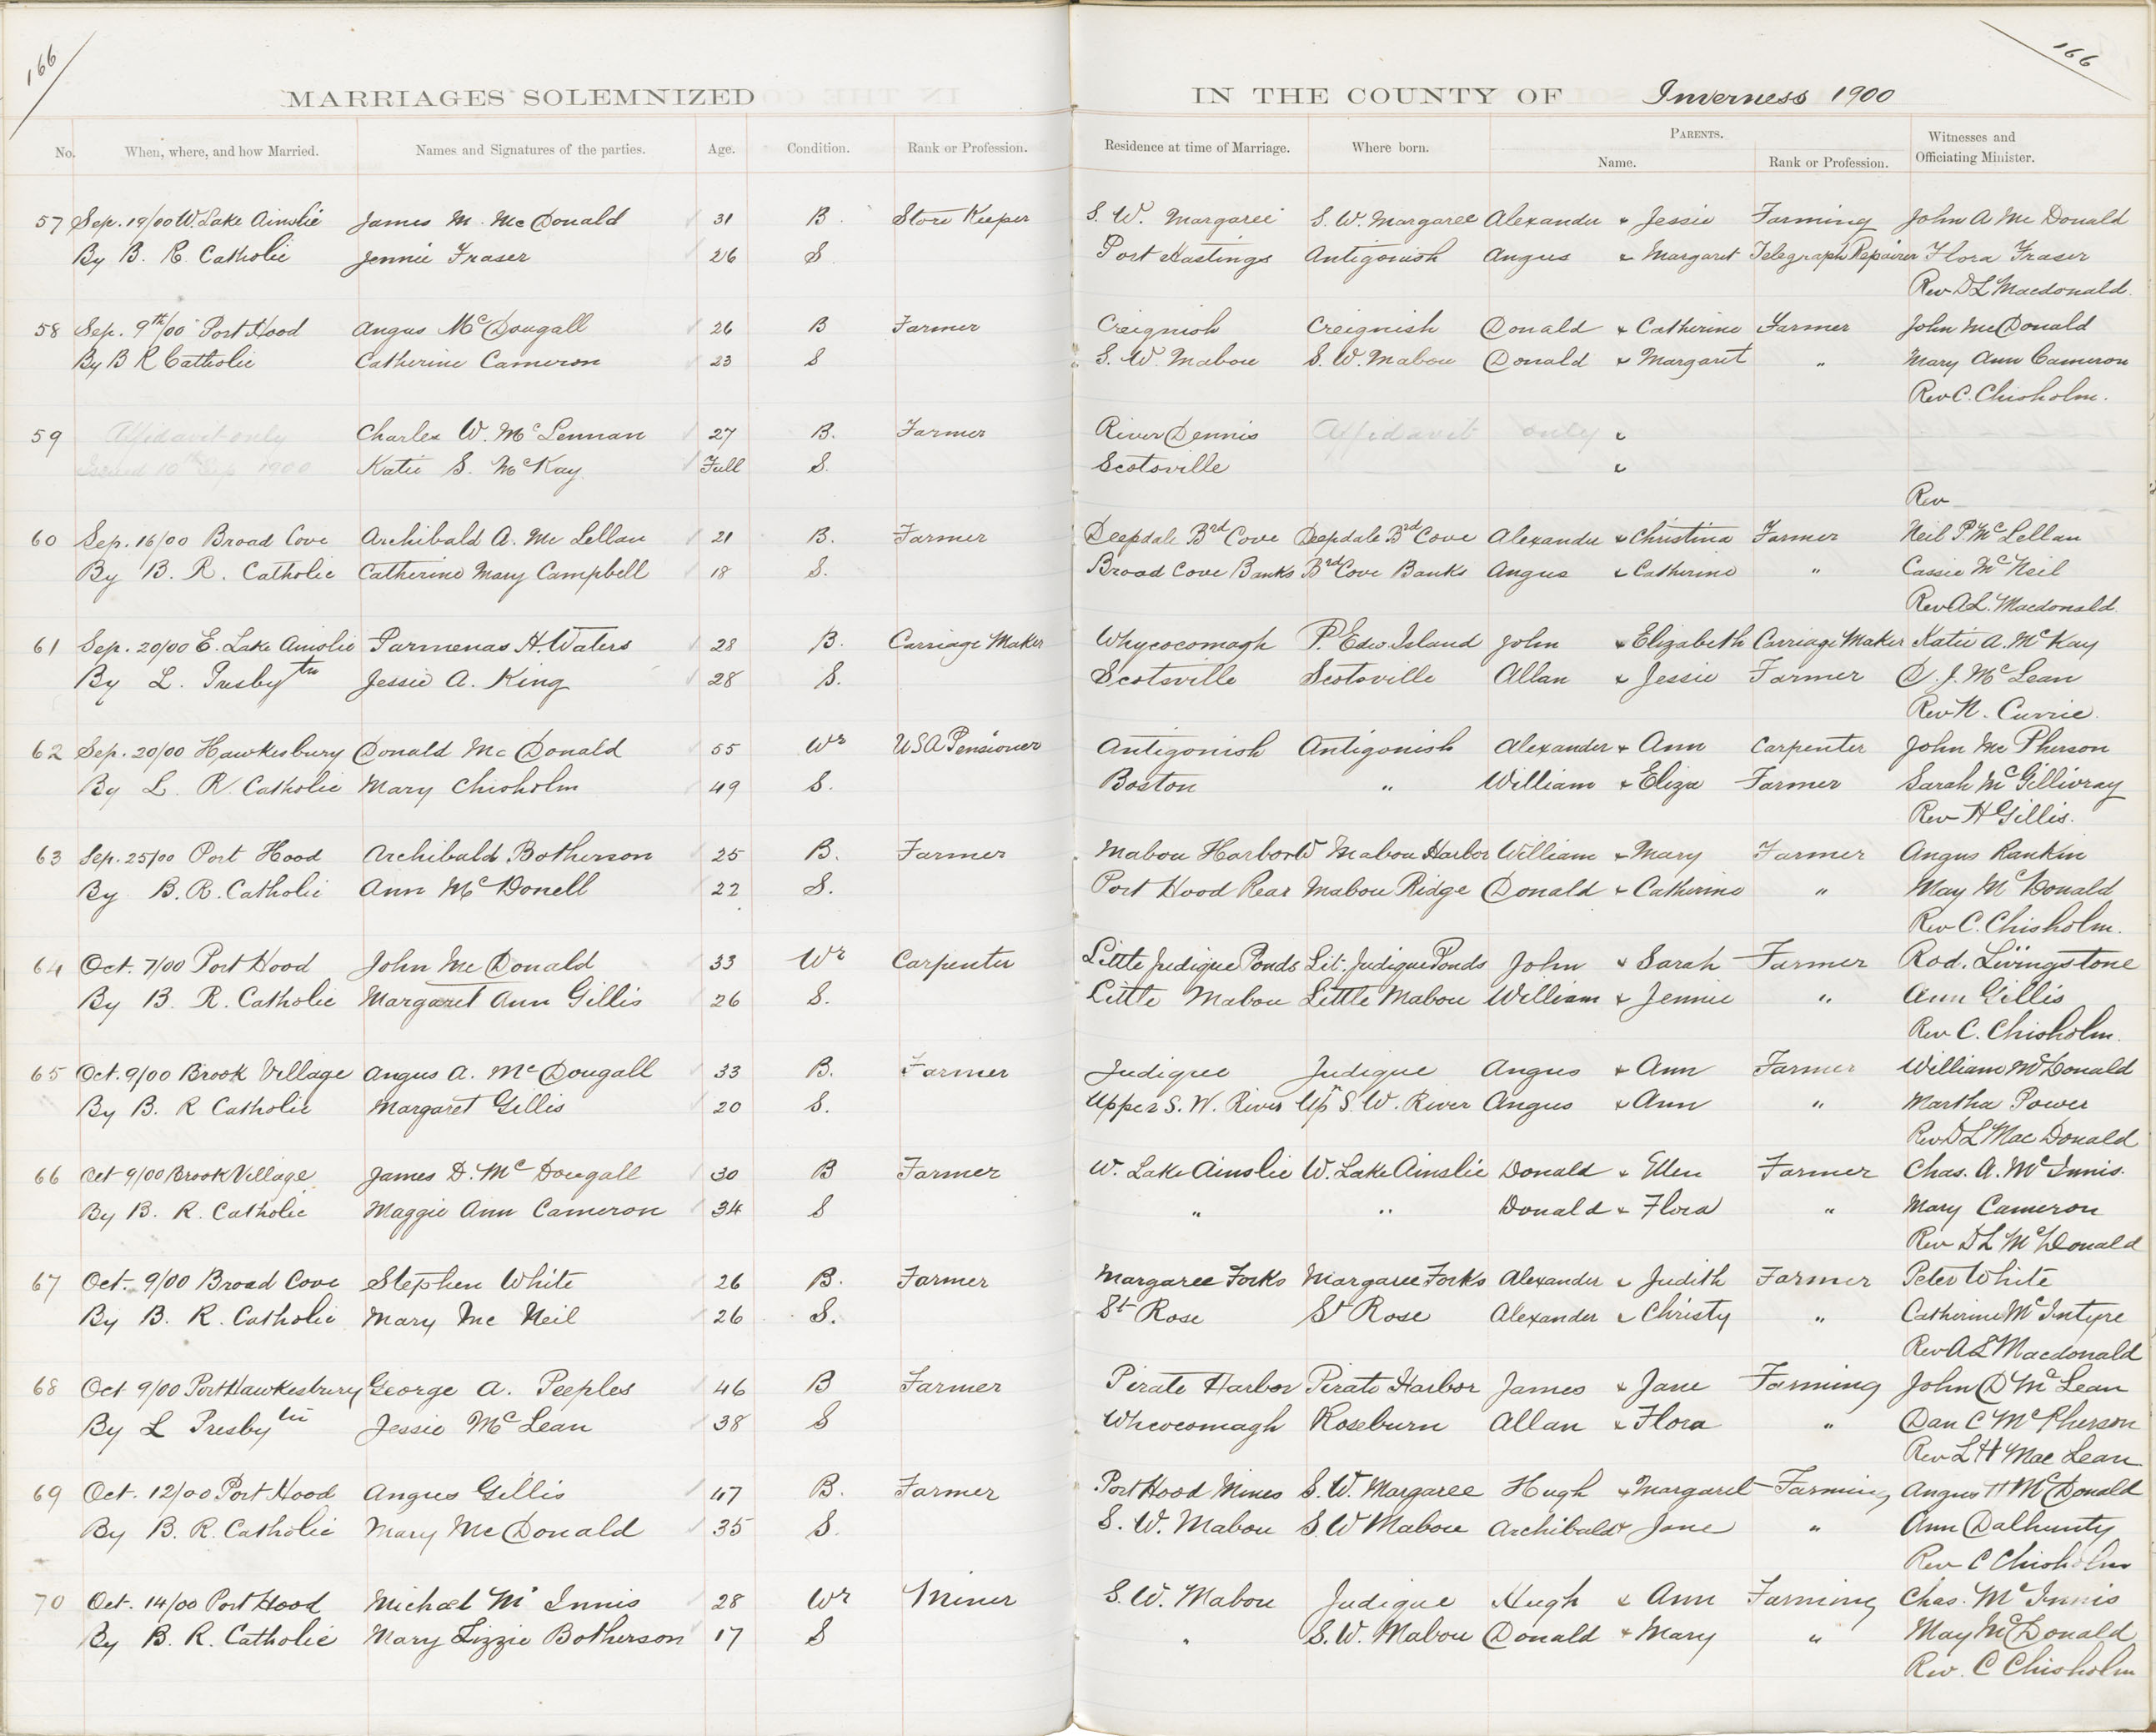 166
166
MARRIAGES SOLEMNIZED IN THE COUNTY OF Inverness 1900
No. When, where, and how Married. Names and Signatures of the parties. Age. Condition. Rank or Profession. Residence at time of Marriage. Where born. PARENTS. Name. Rank or Profession. Witnesses and Officiating Minister.
57 Sep. 19/00 W. Lake Ainslie James M. McDonald 31 B. Store Keeper S. W. Margaree S. W. Margaree Alexander & Jessie Farming John A McDonald
By B. R. Catholic Jennie Fraser 26 S Port Hastings Antigonish Angus & Margaret Telegraph Repairer Flora Fraser
Rev D L Macdonald.
58 Sep. 9th/00 Port Hood Angus McDougall 26 B Farmer Creignish Creignish Donald & Catherine Farmer John McDonald
By B R Catholic Catherine Cameron 23 S S. W. Mabou S. W. Mabou Donald & Margaret " Mary Ann Cameron
Rev C. Chisholm.
59 Affidavit only Charles W. McLennan 27 B. Farmer River Dennis Affidavit only &
Issued 10th Sep 1900 Katie S. McKay Full S. Scotsville &
Rev
60 Sep. 16/00 Broad Cove Archibald A. McLellan 21 B. Farmer Deepdale Brd Cove Deepdale Brd Cove Alexander & Christina Farmer Neil P. McLellan
By B. R. Catholic Catherine Mary Campbell 18 S. Broad Cove Banks Brd Cove Banks Angus & Catherine " Cassie McNeil
Rev A L. Macdonald.
61 Sep. 20/00 E. Lake Ainslie Parmenas H. Waters 28 B. Carriage Maker Whycocomagh P. Edw. Island John & Elizabeth Carriage Maker Katie A. McKay
By L. Presbytn Jessie A. King 28 S. Scotsville Scotsville Allan & Jessie Farmer D. J. McLean
Rev N. Currie.
62 Sep. 20/00 Hawkesbury Donald McDonald 55 Wr USA Pensioner Antigonish Antigonish Alexander & Ann Carpenter John McPherson
By L. R Catholic Mary Chisholm 49 S. Boston " William & Eliza Farmer Sarah McGillivray
Rev H Gillis.
63 Sep. 25/00 Port Hood Archibald Botherson 25 B. Farmer Mabou Harbor W Mabou Harbor William & Mary Farmer Angus Rankin
By B. R. Catholic Ann McDonell 22 S. Port Hood Rear Mabou Ridge Donald & Catherine " May McDonald
Rev C. Chisholm.
64 Oct. 7/00 Port Hood John McDonald 33 Wr Carpenter Little Judique Ponds Lit. Judique Ponds John & Sarah Farmer Rod. Livingstone
By B. R. Catholic Margaret Ann Gillis 26 S. Little Mabou Little Mabou William & Jennie " Ann Gillis
Rev C. Chisholm.
65 Oct. 9/00 Brook Village Angus A. McDougall 33 B. Farmer Judique Judique Angus & Ann Farmer William McDonald
By B. R Catholic Margaret Gillis 20 S. Upper S. W. River Upr S. W. River Angus & Ann " Martha Power
Rev D L MacDonald
66 Oct 9/00 Brook Village James D. McDougall 30 B Farmer W. Lake Ainslie W. Lake Ainslie Donald & Ellen Farmer Chas. A. McInnis.
By B. R. Catholic Maggie Ann Cameron 34 S " " Donald & Flora " Mary Cameron
Rev D L McDonald
67 Oct. 9/00 Broad Cove Stephen White 26 B. Farmer Margaree Forks Margaree Forks Alexander & Judith Farmer Peter White
By B. R. Catholic Mary McNeil 26 S. St Rose St Rose Alexander & Christy " Catherine McIntyre
Rev A L Macdonald
68 Oct 9/00 Port Hawkesbury George A. Peeples 46 B Farmer Pirate Harbor Pirate Harbor James & Jane Farming John D McLean
By L Presbytn Jessie McLean 38 S Whycocomagh Roseburn Allan & Flora " Dan C McPherson
Rev L H MacLean
69 Oct. 12/00 Port Hood Angus Gillis 47 B. Farmer Port Hood Mines S. W. Margaree Hugh & Margaret Farming Angus H McDonald
By B. R. Catholic Mary McDonald 35 S. S. W. Mabou S. W Mabou Archibald & Jane " Ann Dalhunty
Rev C Chisholm
70 Oct. 14/00 Port Hood Michael McInnis 28 Wr Miner S. W. Mabou Judique Hugh & Ann Farming Chas. McInnis
By B. R. Catholic Mary Lizzie Botherson 17 S " S. W. Mabou Donald & Mary " May McDonald
Rev. C Chisholm